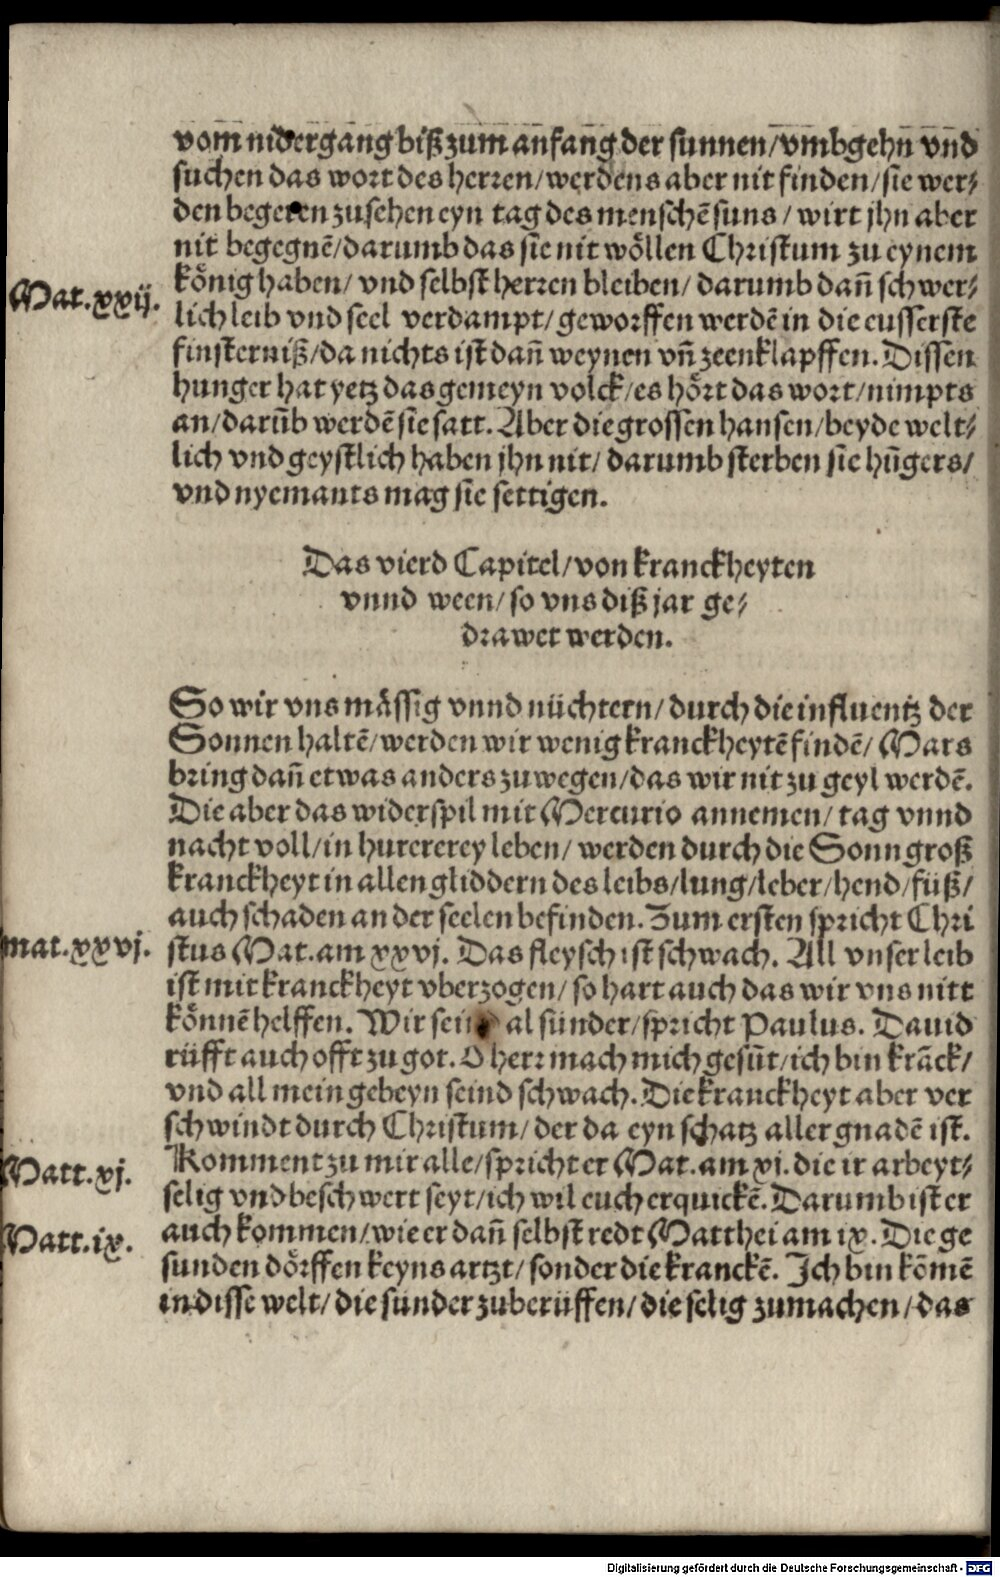 vom nidergang biß zum anfang der sunnen/vmbgehn vnd
suchen das wort des herren/werdens aber nit finden/sie wer⸗
den begeren zusehen eyn tag des menschē suns/ wirt jhn aber
nit begegnē/darumb das sie nit wöllen Christum zu eynem
könig haben/ vnd selbst herren bleiben/ darumb dañ schwer⸗
Mat.xxij.
lich leib vnd seel verdampt/geworffen werdē in die eusserste
finsterniß/da nichts ist dañ weynen vñ zeenklapffen. Dissen
hunger hat yetz das gemeyn volck/es hört das wort/nimpts
an/darūb werdē sie satt. Aber die grossen hansen/beyde welt⸗
lich vnd geystlich haben jhn nit/ darumb sterben sie hūgers/
vnd nyemants mag sie settigen.
Das vierd Capitel/von kranckheyten
vnnd ween/so vns diß jar ge⸗
drawet werden.
So wir vns mässig vnnd nüchtern/durch die influentz der
Sonnen haltē/werden wir wenig kranckheytē findē/ Mars
bring dañ etwas anders zuwegen/das wir nit zu geyl werdē.
Die aber das widerspil mit Mercurio annemen/ tag vnnd
nacht voll/in hurererey leben/ werden durch die Sonn groß
kranckheyt in allen gliddern des leibs/lung/leber/hend/füß/
auch schaden an der seelen befinden. Zum ersten spricht Chri
mat.xxvj.
stus Mat.am xxvj. Das fleysch ist schwach. All vnser leib
ist mit kranckheyt vberzogen/ so hart auch das wir vns nitt
könnē helffen. Wir seind al sünder/spricht Paulus. Dauid
rüfft auch offt zu got. O herr mach mich gesūt/ich bin krāck/
vnd all mein gebeyn seind schwach. Die kranckheyt aber ver
schwindt durch Christum/ der da eyn schatz aller gnadē ist.
Komment zu mir alle/spricht er Mat.am xj. die ir arbeyt⸗
Matt.xj.
selig vnd beschwert seyt/ich wil euch erquickē. Darumb ist er
auch kommen/wie er dañ selbst redt Matthei am ix. Die ge
Matt.ix.
sunden dörffen keyns artzt/sonder die kranckē. Ich bin kōmē
in disse welt/die sünder zuberüffen/die selig zumachen/das
Digitalisierung gefördert durch die Deutsche Forschungsgemeinschaft - DFG